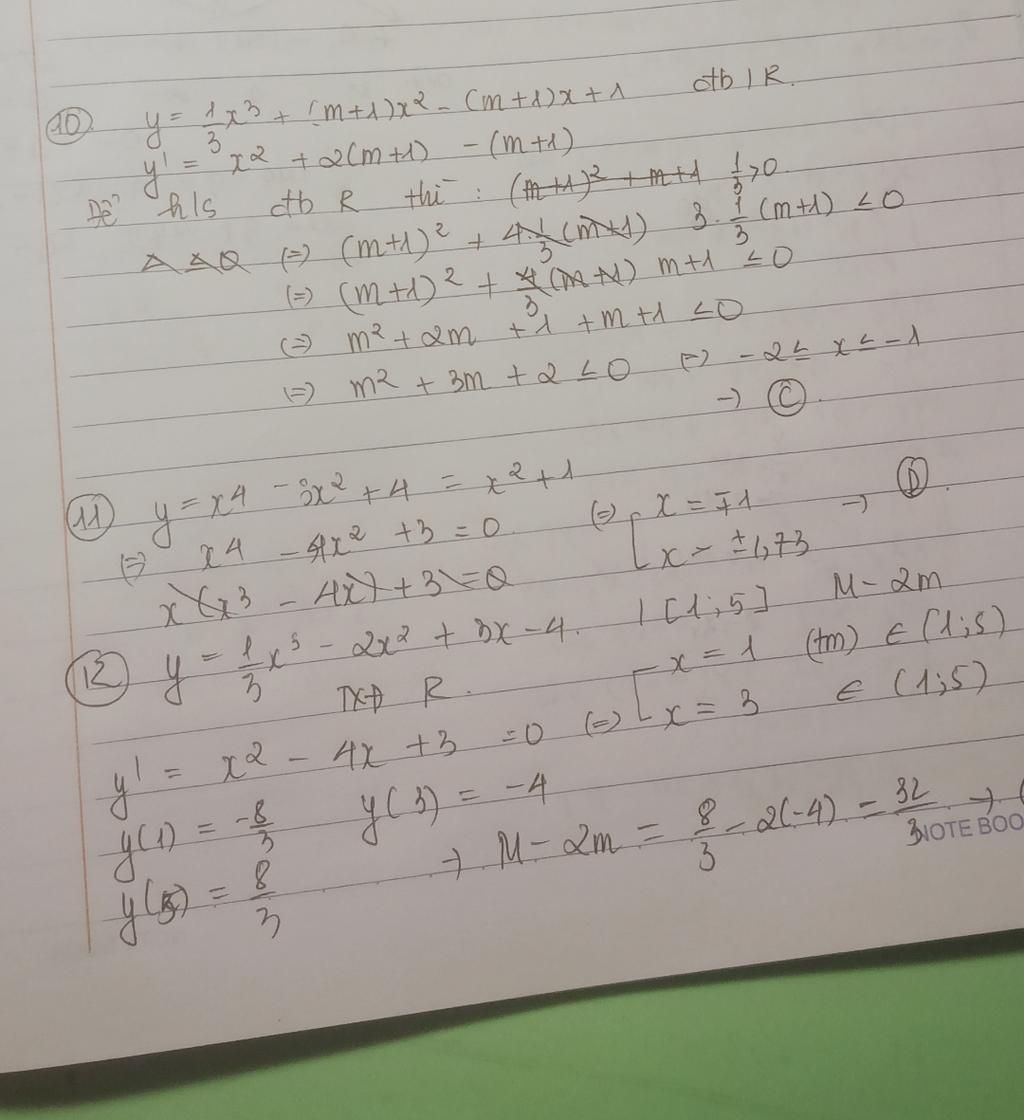 10 y = 1/3 x³ + (m+1)x² - (m+1)x + 1 đtb / R.
y' = x² + 2(m+1) - (m+1)
Để h/s đtb R thì : (m+1)² + m+1 1/3 > 0
Δ ≤ 0 (=) (m+1)² + 4·1/3 (m+1) 3·1/3 (m+1) ≤ 0
(=) (m+1)² + 4/3 (m+1) m+1 ≤ 0
(=) m² + 2m + 1 + m+1 ≤ 0
(=) m² + 3m + 2 ≤ 0 (=) -2 ≤ x ≤ -1
→ C.
11 y = x4 - 3x² + 4 = x² + 1
(=) x4 - 4x² + 3 = 0 (=) [ x = ∓1 → D.
x = ±1,73
x (x³ - 4x) + 3 = 0
12 y = 1/3 x³ - 2x² + 3x - 4. / [1;5] M - 2m
TXĐ R.
y' = x² - 4x + 3 = 0 (=) [ x = 1 (tm) ∈ (1;5)
x = 3 ∈ (1;5)
y(1) = -8/3 y(3) = -4
y(5) = 8/3 → M - 2m = 8/3 - 2(-4) = 32/3 →
NOTE BOO